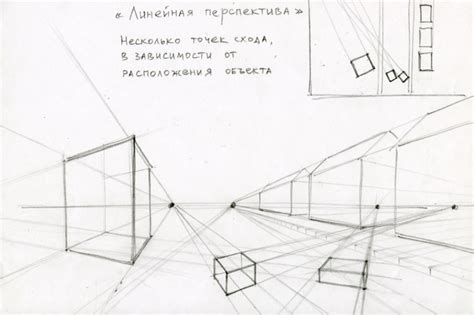 « Линейная перспектива »
Несколько точек схода,
в зависимости от
расположения объекта